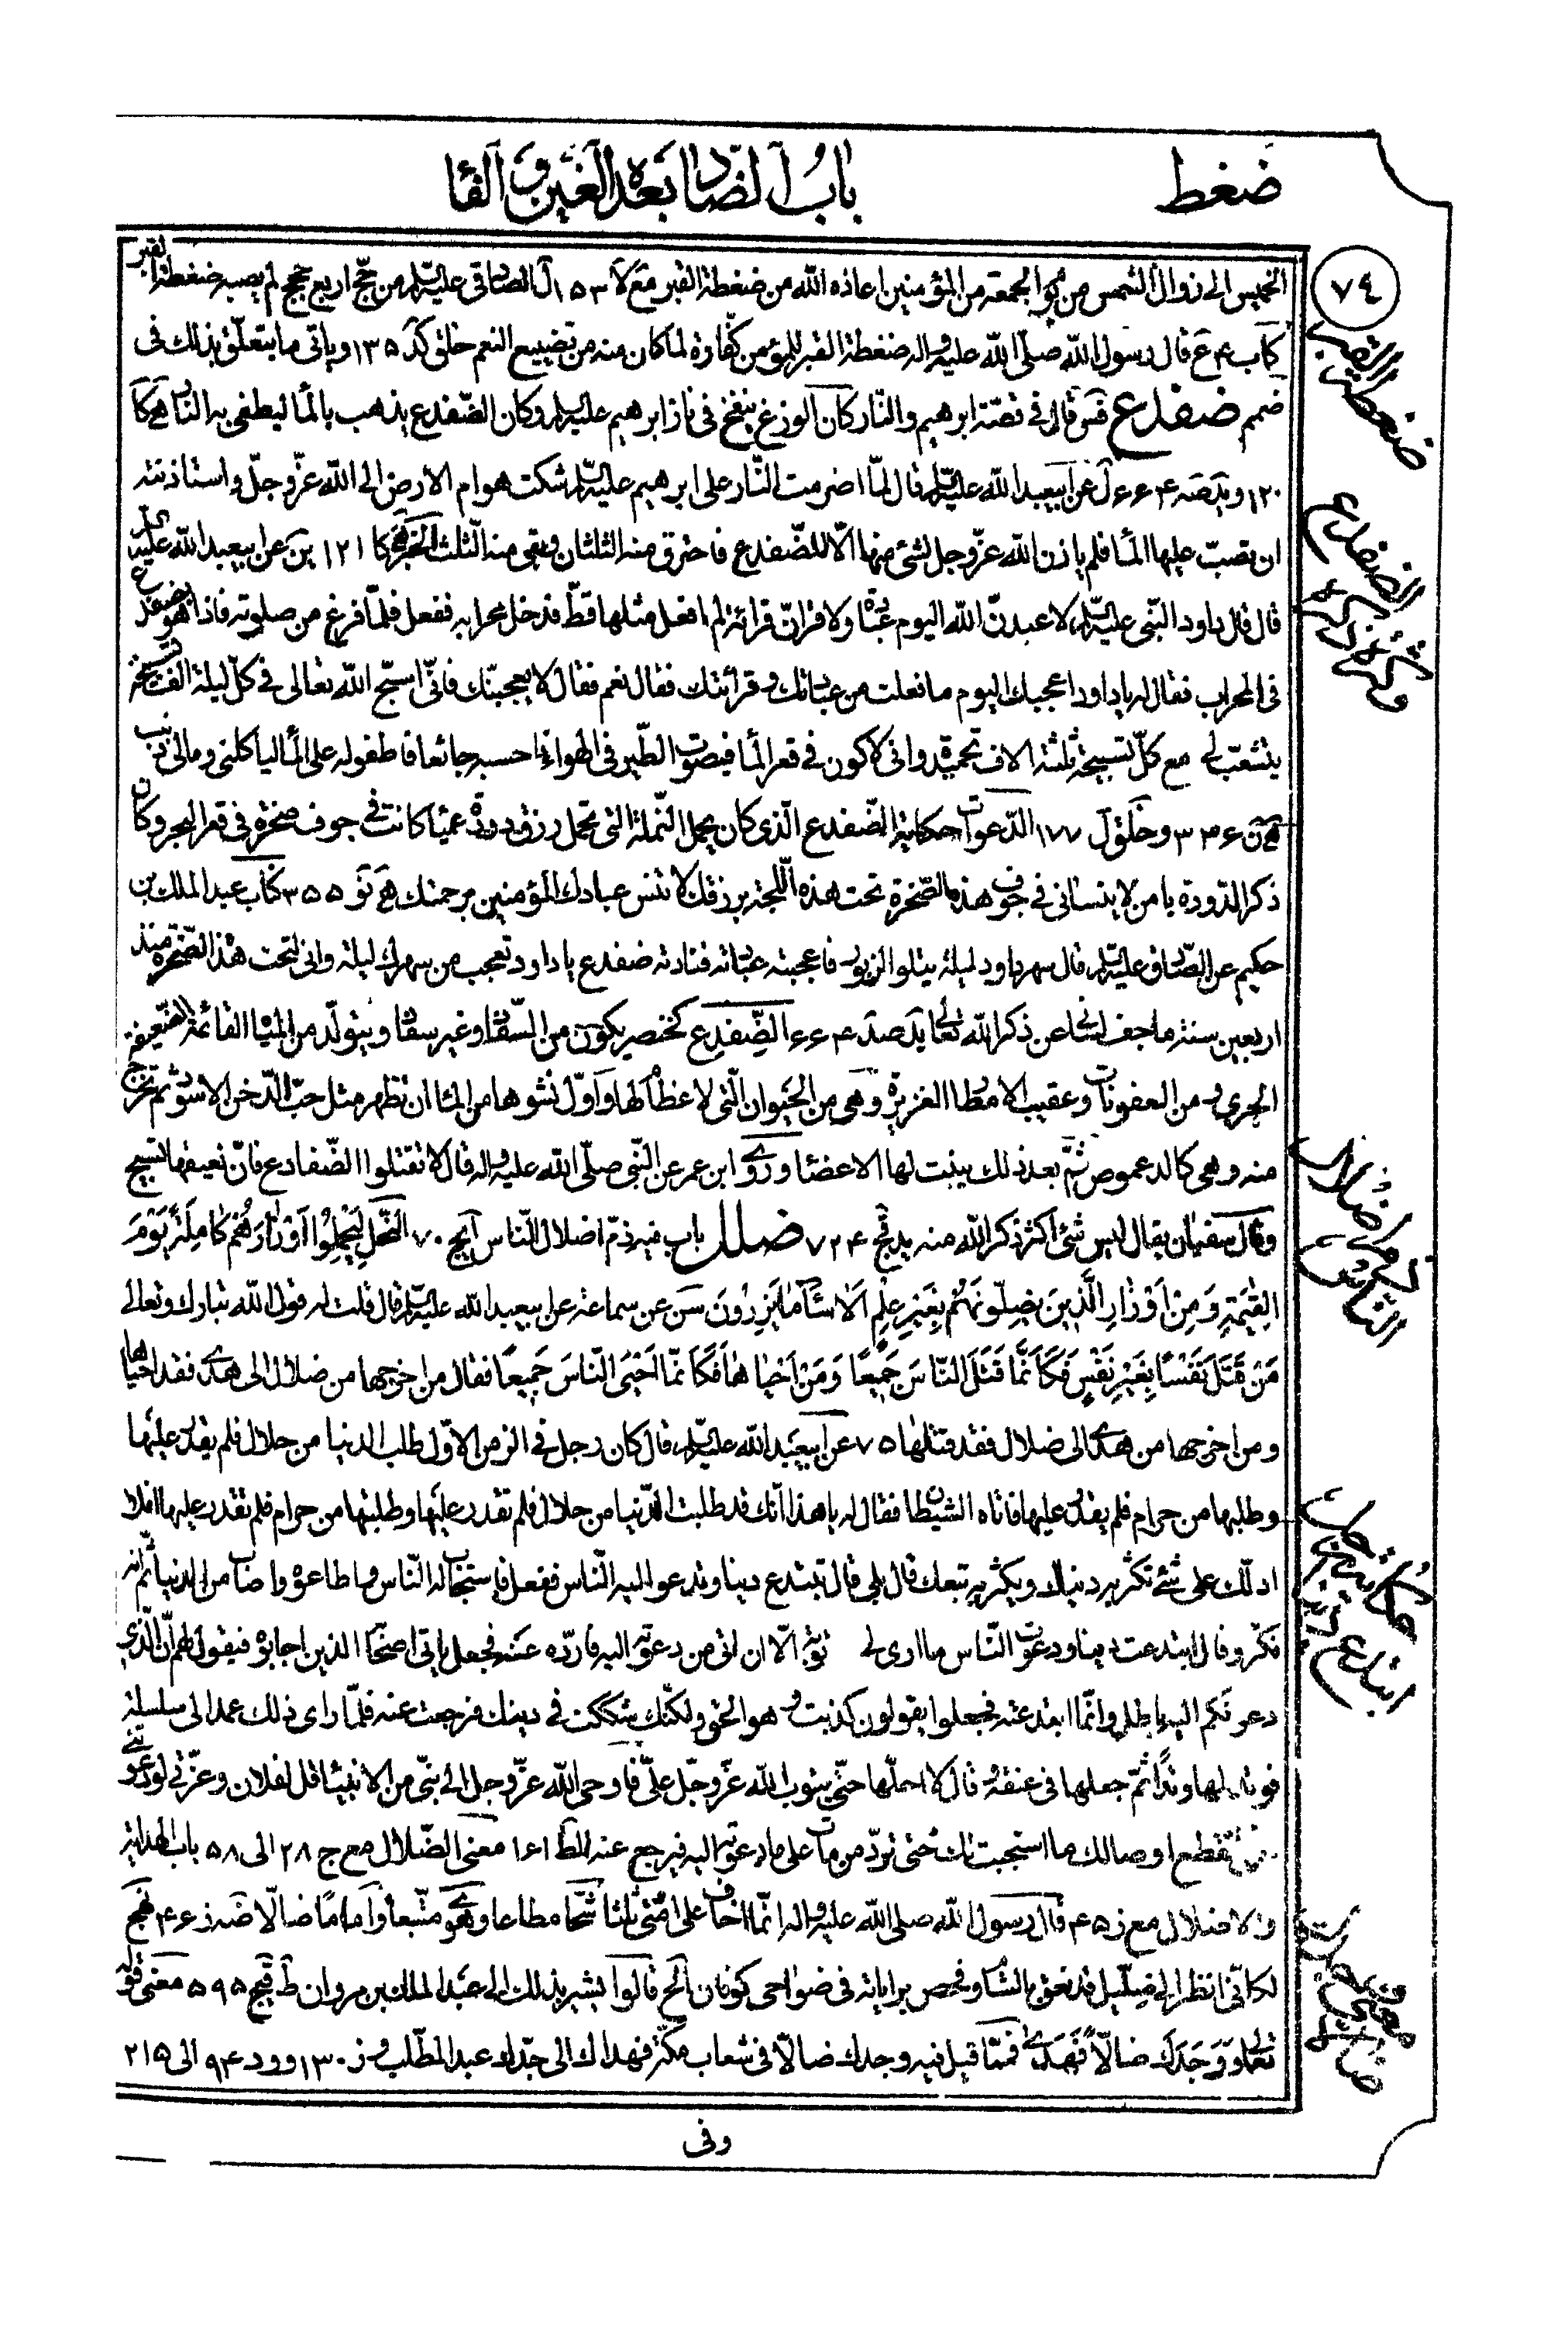 ضغط
باب الضاد بعده الغين والفاء
٧٤
الخميس الى زوال الشمس من يوم الجمعة من المؤمنين اعاذه الله من ضغطة القبر مع لا ١٥٣ ل الصادق عليه السلام من حج اربع حجج لم يصبه ضغطة القبر
قال رسول الله صلى الله عليه واله ضغطة القبر للمؤمن كفارة لما كان منه من تضييع النعم خلق كد ١٣٥ وياتي ما يتعلق بذلك في
ضمم ضفدع فس قال في قصة ابرهيم والنار كان الوزغ ينفخ في نار ابرهيم عليه السلام وكان الضفدع يذهب بالماء ليطفي به النار
١٢٠ ويد صد ٦٦٤ ل عن ابيعبد الله عليه السلام قال لما اضرمت النار على ابرهيم عليه السلام شكت هوام الارض الى الله عز وجل واستاذنته
ان تصب عليها الماء فلم ياذن الله عز وجل لشئ منها الا للضفدع فاحترق منه الثلثان وبقى منه الثلث ١٢١ ين عن ابيعبد الله عليه السلام
قال قال داود النبي عليه السلام لاعبدن الله اليوم عبادة ولاقرأن قرائة لم افعل مثلها قط فدخل محرابه ففعل فلما فرغ من صلوته فاذا هو بضفدع
في المحراب فقال له يا داود اعجبك اليوم ما فعلت من عبادتك وقرائتك فقال نعم فقال لا يعجبنك فاني اسبح الله تعالى في كل ليلة الف تسبيحة
يتشعب لي مع كل تسبيحة ثلثة الاف تحميدة واني لاكون في قعر الماء فيصوت الطير في الهواء فاحسبه جائعا فاطفو له على الماء لياكلني ومالي ذنب
٣٣٦ وخلق ل ١٧٧ الدعوات حكاية الضفدع الذي كان يحمل النملة التي تحمل رزق دودة عمياء كانت في جوف صخرة في قعر البحر وكان
ذكر الدودة يا من لا ينساني في جوف هذه الصخرة تحت هذه اللجة برزقك لا تنس عبادك المؤمنين برحمتك ٣٥٥ كتاب عبد الملك بن
حكيم عن الصادق عليه السلام قال سهر داود ليلة يتلو الزبور فاعجبته عبادته فنادته ضفدع يا داود تعجب من سهرك ليلة واني لتحت هذه الصخرة منذ
اربعين سنة ما جف لساني عن ذكر الله تعالى يد صد ٦٦٤ الضفدع كخنصر يكون من السفاد وغير سفاد ويتولد من المياه القائمة الضعيفة
الجري ومن العفونات وعقيب الامطار الغزيرة وهي من الحيوان التي لا عظام لها واول نشوها من الماء ان تظهر مثل حب الدخن الاسود ثم تخرج
منه وهي كالدعموص ثم بعد ذلك ينبت لها الاعضاء وروى ابن عمر عن النبي صلى الله عليه واله قال لا تقتلوا الضفادع فان نقيقها تسبيح
وقال سفيان يقال ليس شئ اكثر ذكر الله منه يد قج ٧٢٤ ضلل باب فيه ذم اضلال الناس ايج ٧٠ النحل ليحملوا اوزارهم كاملة يوم
القيمة ومن اوزار الذين يضلونهم بغير علم الا ساء ما يزرون سن عن سماعة عن ابيعبد الله عليه السلام قال قلت له قول الله تبارك وتعالى
من قتل نفسا بغير نفس فكانما قتل الناس جميعا ومن احياها فكانما احيى الناس جميعا فقال من اخرجها من ضلال الى هدى فقد احياها
ومن اخرجها من هدى الى ضلال فقد قتلها ٧٥ عن ابيعبد الله عليه السلام قال كان رجل في الزمن الاول طلب الدنيا من حلال فلم يقدر عليها
وطلبها من حرام فلم يقدر عليها فاتاه الشيطان فقال له يا هذا انك قد طلبت الدنيا من حلال فلم تقدر عليها وطلبتها من حرام فلم تقدر عليها افلا
ادلك على شئ تكثر به دنياك ويكثر به تبعك قال بلى قال تبتدع دينا وتدعو اليه الناس ففعل فاستجاب له الناس واطاعوه واصاب من الدنيا ثم انه
فكر وقال ابتدعت دينا ودعوت الناس ما ارى لي توبة الا ان اتي من دعوته اليه فارده عنه فجعل ياتي اصحابه الذين اجابوه فيقول لهم ان الذي
دعوتكم اليه باطل وانما ابتدعته فجعلوا يقولون كذبت وهو الحق ولكنك شككت في دينك فرجعت عنه فلما راى ذلك عمد الى سلسلة
فوتد لها وتدا ثم جعلها في عنقه قال لا احلها حتى يتوب الله عز وجل علي فاوحى الله عز وجل الى نبي من الانبياء قل لفلان وعزتي لو دعوتني
تنقطع اوصالك ما استجبت لك حتى ترد من مات على ما دعوته اليه فيرجع عنه ١٦١ معنى الضلال مع ج ٢٨ الى ٥٨ باب الهداية
والاضلال مع ز ٤٥ قال رسول الله صلى الله عليه واله انما اخاف على امتي ثلثا شحا مطاعا وهوى متبعا واماما ضالا ضه ز ٤٦ نهج
لكاني انظر الى ضليل قد نعق بالشام وفحص براياته في ضواحي كوفان الخ قالوا يشير بذلك الى عبد الملك بن مروان ط قيج ٥٩٥ معنى قوله
تعالى ووجدك ضالا فهدى فمما قيل فيه وجدك ضالا في شعاب مكة فهداك الى جدك عبد المطلب و ز ١٣٠ وود ٩٤ الى ٢١٥
وفي
ضغطة القبر
الضفدع